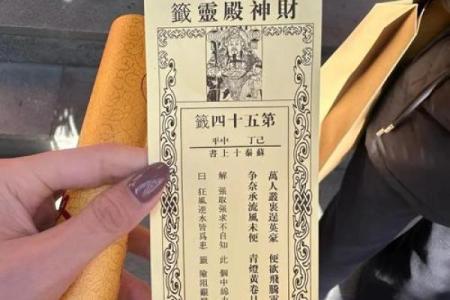 財神殿靈籤
第五十四籤
己丁 中平
蘇秦十上書
萬人叢裏逞英豪 便欲飛騰
争奈承流風未便 青燈黃卷
解 強取強求不自知 此個中
曰 狂風逆水皆爲患 籤 險阻